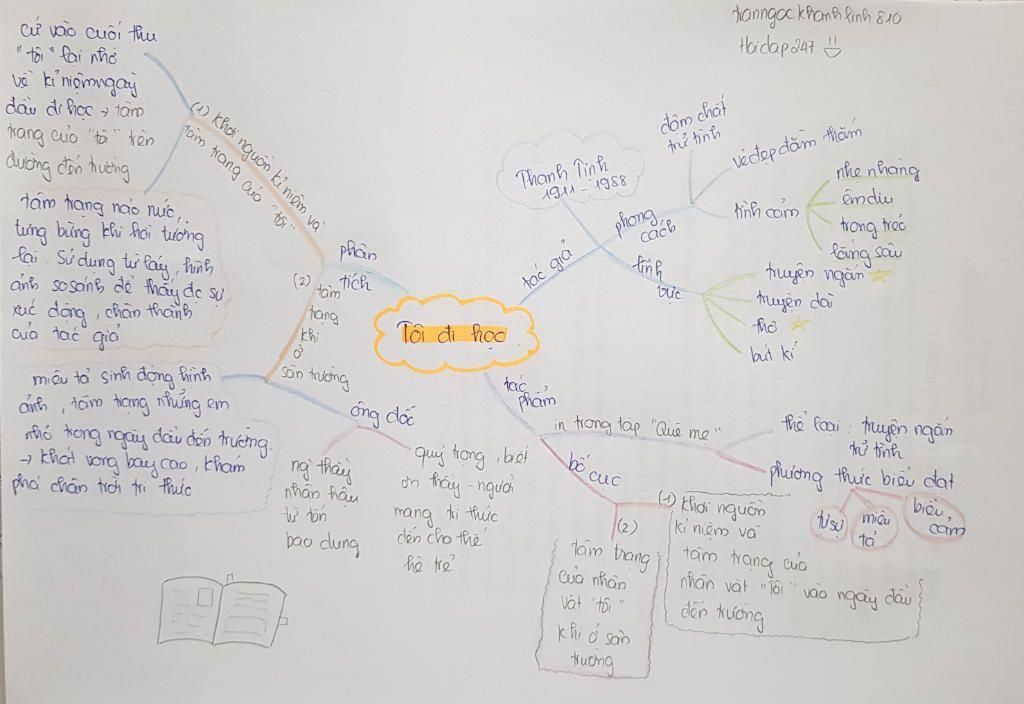 tranngockhanhlinh810
Hoidap247
cứ vào cuối thu
"tôi" lại nhớ
về kỉ niệm ngày
đầu đi học → tâm
trạng của "tôi" trên
đường đến trường
(1) Khơi nguồn kỉ niệm và
tâm trạng của "tôi"
tâm trạng náo nức,
tưng bừng khi hồi tưởng
lại. Sử dụng từ láy, hình
ảnh so sánh để thấy đc sự
xúc động, chân thành
của tác giả
phân
tích
(2) tâm
trạng
khi
ở
sân trường
miêu tả sinh động hình
ảnh, tâm trạng những em
nhỏ trong ngày đầu đến trường.
→ khát vọng bay cao, khám
phá chân trời tri thức
ông đốc
ng thầy
nhân hậu
từ tốn
bao dung
quý trọng, biết
ơn thầy - người
mang tri thức
đến cho thế
hệ trẻ.
Tôi đi học
tác giả
Thanh Tịnh
1911 - 1988
phong
cách
đậm chất
trữ tình
vẻ đẹp đằm thắm
tình cảm
nhẹ nhàng
êm dịu
trong trẻo
lắng sâu
lĩnh
vực
truyện ngắn
truyện dài
thơ
bút kí
tác
phẩm
in trong tập "Quê mẹ"
thể loại : truyện ngắn
trữ tình
phương thức biểu đạt
tự sự
miêu
tả
biểu
cảm
bố cục
(1) Khơi nguồn
kỉ niệm và
tâm trạng của
nhân vật "tôi" vào ngày đầu
đến trường
(2)
tâm trạng
của nhân
vật "tôi"
khi ở sân
trường